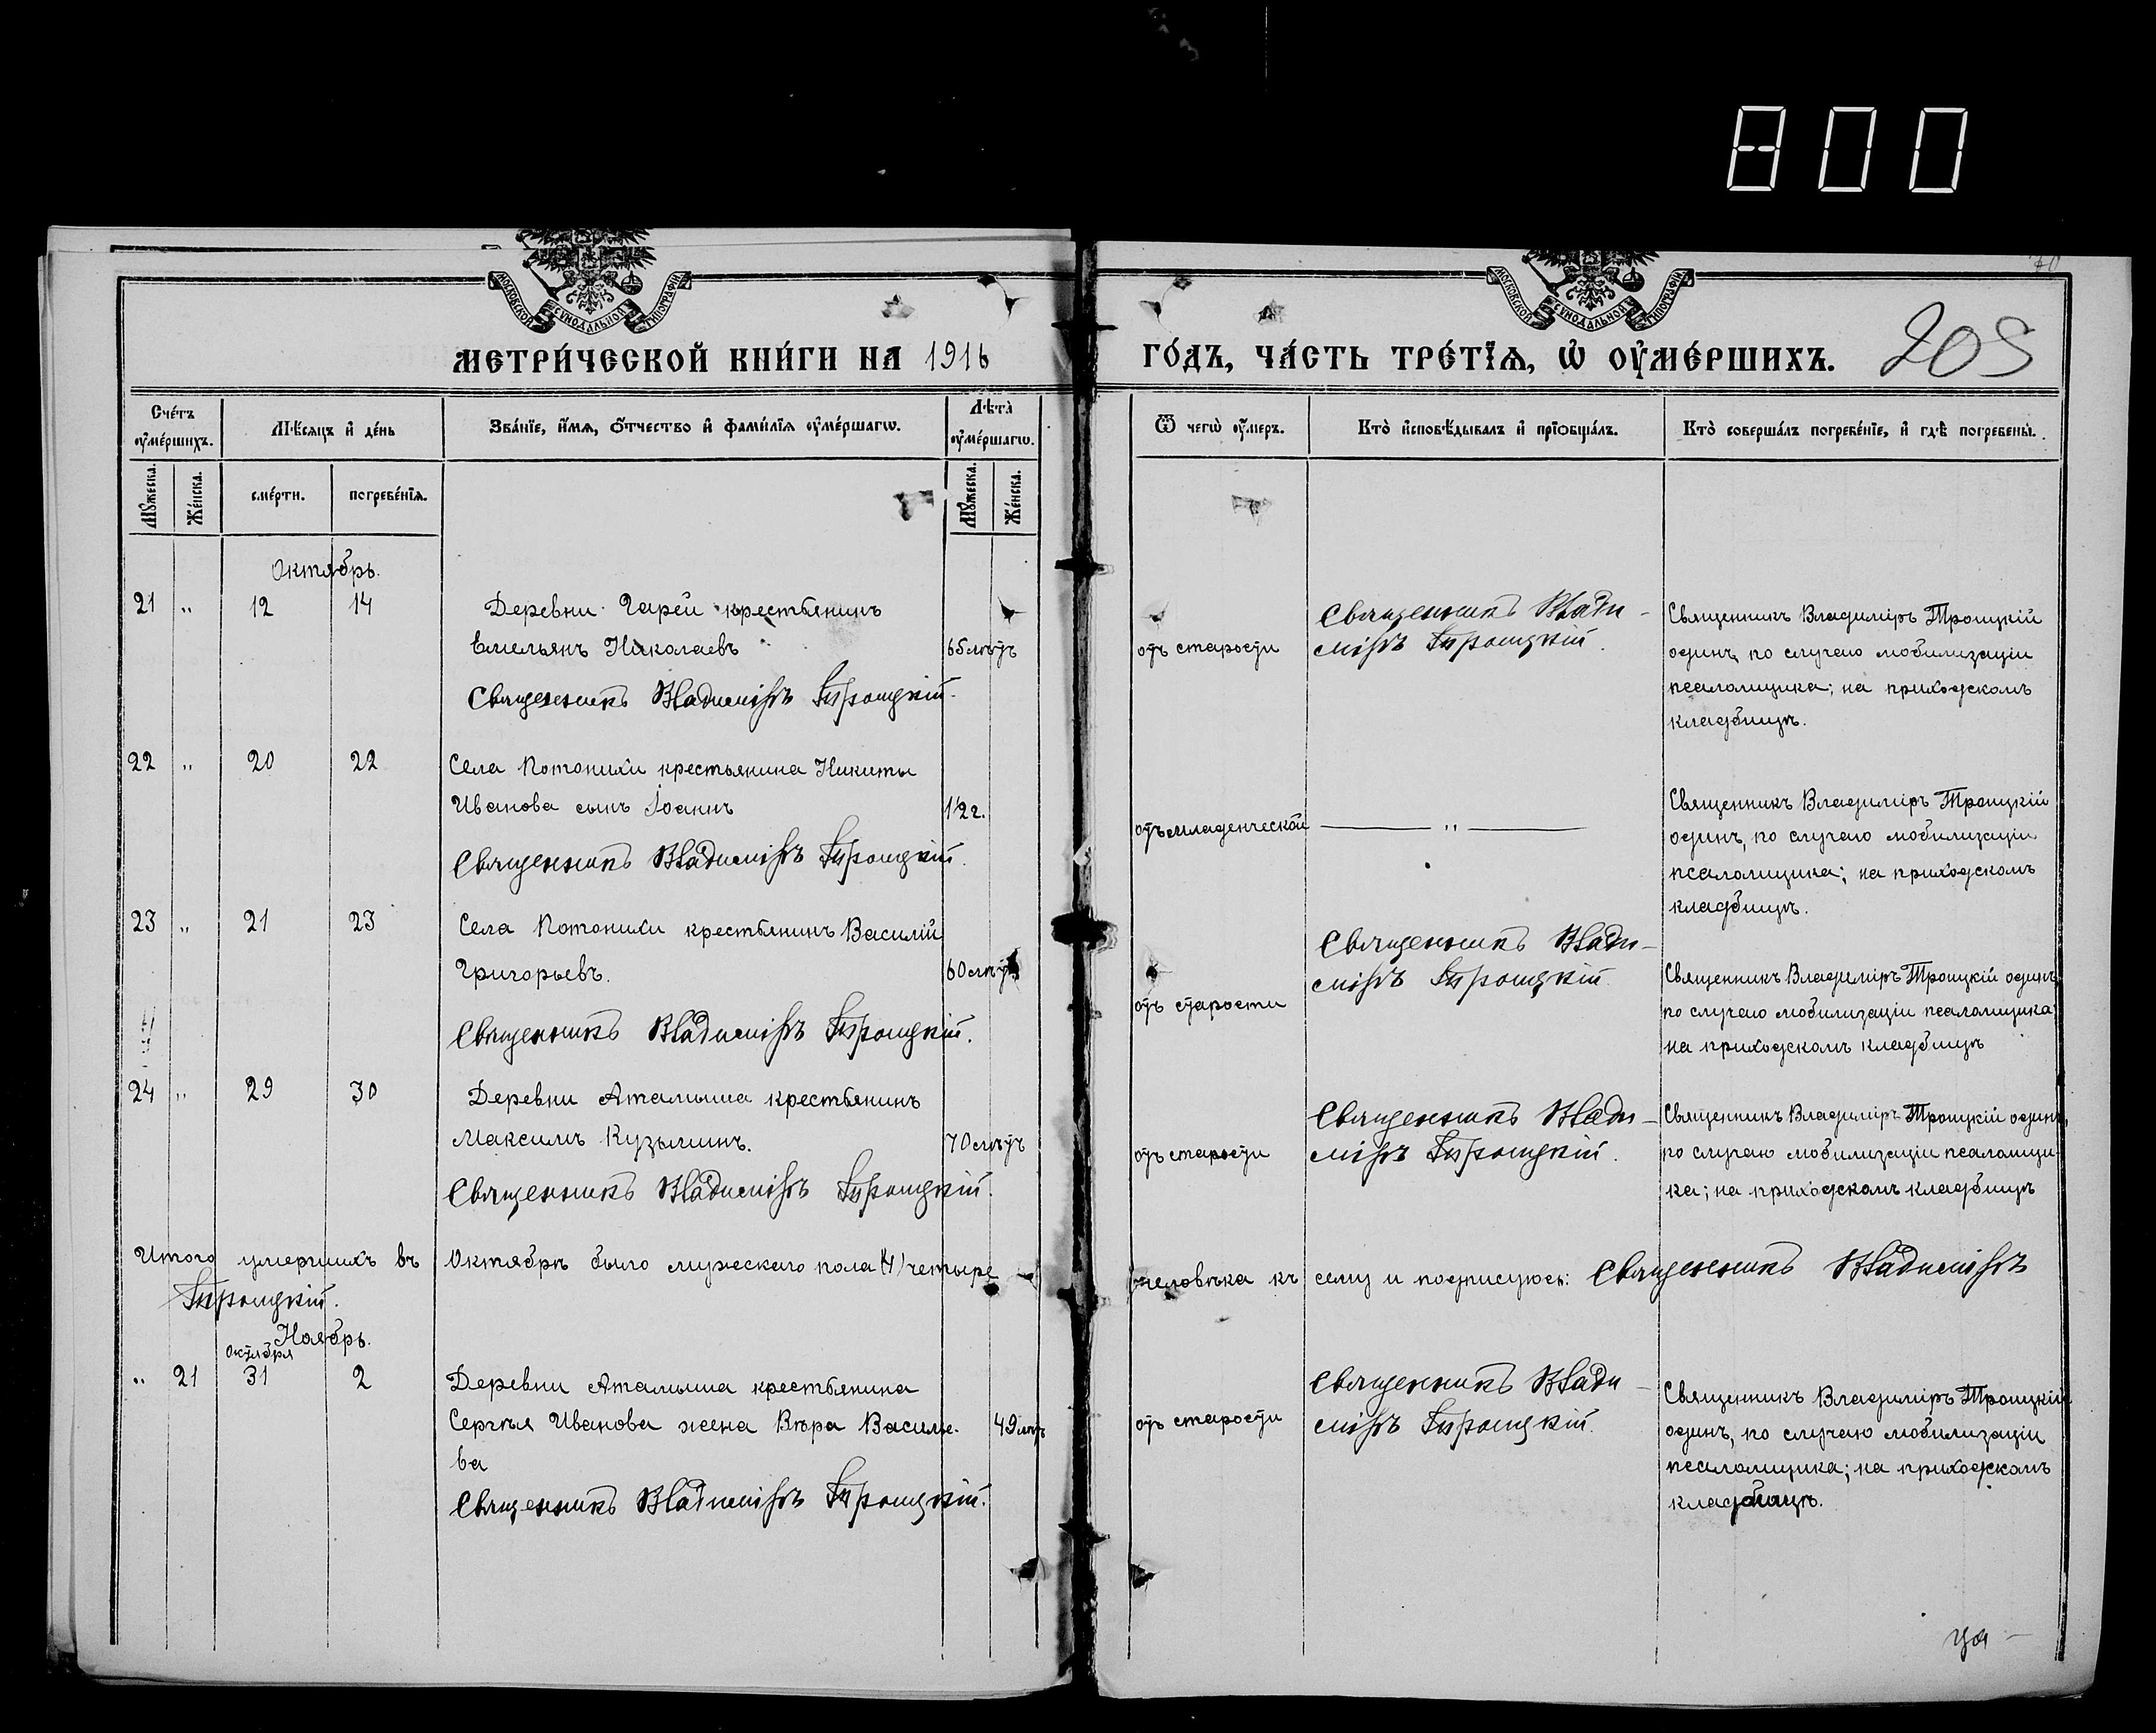 800
МОСКОВСКОЙ СѴНОДАЛЬНОЙ ТИПОГРАФІИ
МОСКОВСКОЙ СѴНОДАЛЬНОЙ ТИПОГРАФІИ
МЕТРИ́ЧЕСКОЙ КНИ́ГИ НА 1916
ГО́ДЪ, ЧА́СТЬ ТРЕ́ТЇѦ, Ѡ҆ ОУ҆МЕ́РШИХЪ. 205
Сче́тъ оу҆ме́ршихъ.
Мѣ́сяцъ и҆ де́нь
Зва́нїе, и҆́мѧ, ѻ҆́тчество и҆ фами́лїѧ оу҆ме́ршагѡ.
Лѣта̀ оу҆ме́ршагѡ.
Ѿ чегѡ̀ оу҆́меръ.
Кто̀ и҆сповѣ́дывалъ и҆ прїѡбща́лъ.
Кто̀ соверша́лъ погребе́нїе, и҆ гдѣ̀ погребены̀.
Мꙋ́жеска. Же́нска. сме́рти. погребе́нїѧ. Мꙋ́жеска. Же́нска.
Октябрь.
21 " 12 14 Деревни Гарей крестьянинъ
Емельянъ Николаевъ 65 лѣтъ
Священникъ Владиміръ Троицкій.
отъ старости
Священникъ Влади-
міръ Троицкій.
Священникъ Владиміръ Троицкій
одинъ, по случаю мобилизаціи
псаломщика; на приходскомъ
кладбищѣ.
22 " 20 22 Села Потонихи крестьянина Никиты
Иванова сынъ Іоаннъ 1/2 г.
Священникъ Владиміръ Троицкій.
отъ младенческой
"
Священникъ Владиміръ Троицкій
одинъ, по случаю мобилизаціи
псаломщика; на приходскомъ
кладбищѣ.
23 " 21 23 Села Потонихи крестьянинъ Василій
Григорьевъ. 60 лѣтъ
Священникъ Владиміръ Троицкій.
отъ старости
Священникъ Влади-
міръ Троицкій
Священникъ Владиміръ Троицкій одинъ,
по случаю мобилизаціи псаломщика;
на приходскомъ кладбищѣ
24 " 29 30 Деревни Аталыша крестьянинъ
Максимъ Кузьминъ. 70 лѣтъ
Священникъ Владиміръ Троицкій.
отъ старости
Священникъ Влади-
міръ Троицкій.
Священникъ Владиміръ Троицкій одинъ,
по случаю мобилизаціи псаломщи-
ка; на приходскомъ кладбищѣ
Итого умершихъ въ Октябрѣ было мужескаго пола (4) четыре
человѣка къ сему и подписуюсь: Священникъ Владиміръ
Троицкій.
Ноябрь.
Октября
" 21 31 2 Деревни Аталыша крестьянина
Сергѣя Иванова жена Вѣра Василье-
ва 49 лѣтъ
Священникъ Владиміръ Троицкій.
отъ старости
Священникъ Влади-
міръ Троицкій.
Священникъ Владиміръ Троицкій
одинъ, по случаю мобилизаціи
псаломщика; на приходскомъ
кладбищѣ.